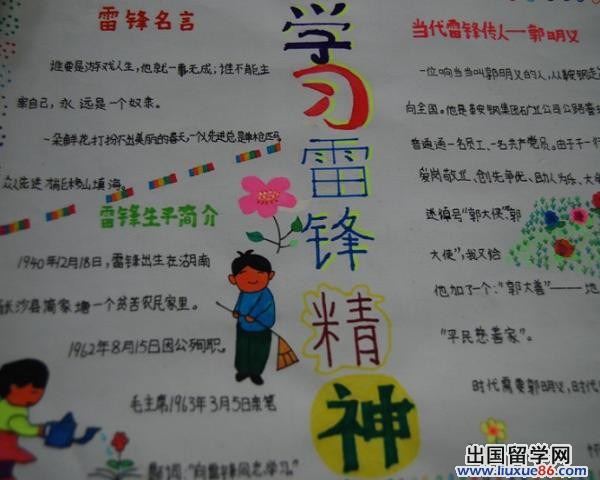 雷锋名言
谁要是游戏人生，他就一事无成；谁不能主
宰自己，永远是一个奴隶。
一朵鲜花打扮不出美丽的春天，一个人先进总是单枪匹马，
众人先进才能移山填海。
雷锋生平简介
1940年12月18日，雷锋出生在湖南
长沙县简家塘一个贫苦农民家里。
1962年8月15日因公殉职。
毛主席1963年3月5日亲笔
题词："向雷锋同志学习。"
学习雷锋精神
当代雷锋传人——郭明义
一位响当当叫郭明义的人，从鞍钢走
向全国。他是鞍钢集团矿业公司公路
普通通一名员工、一名共产党员。由于
爱岗敬业、创先争优、助人为乐、大
送绰号"郭大使"郭
大使"，我又给
他加了个："郭大善"——地
"平民慈善家"。
时代需要郭明义，时代
出国留学网
www.liuxue86.com